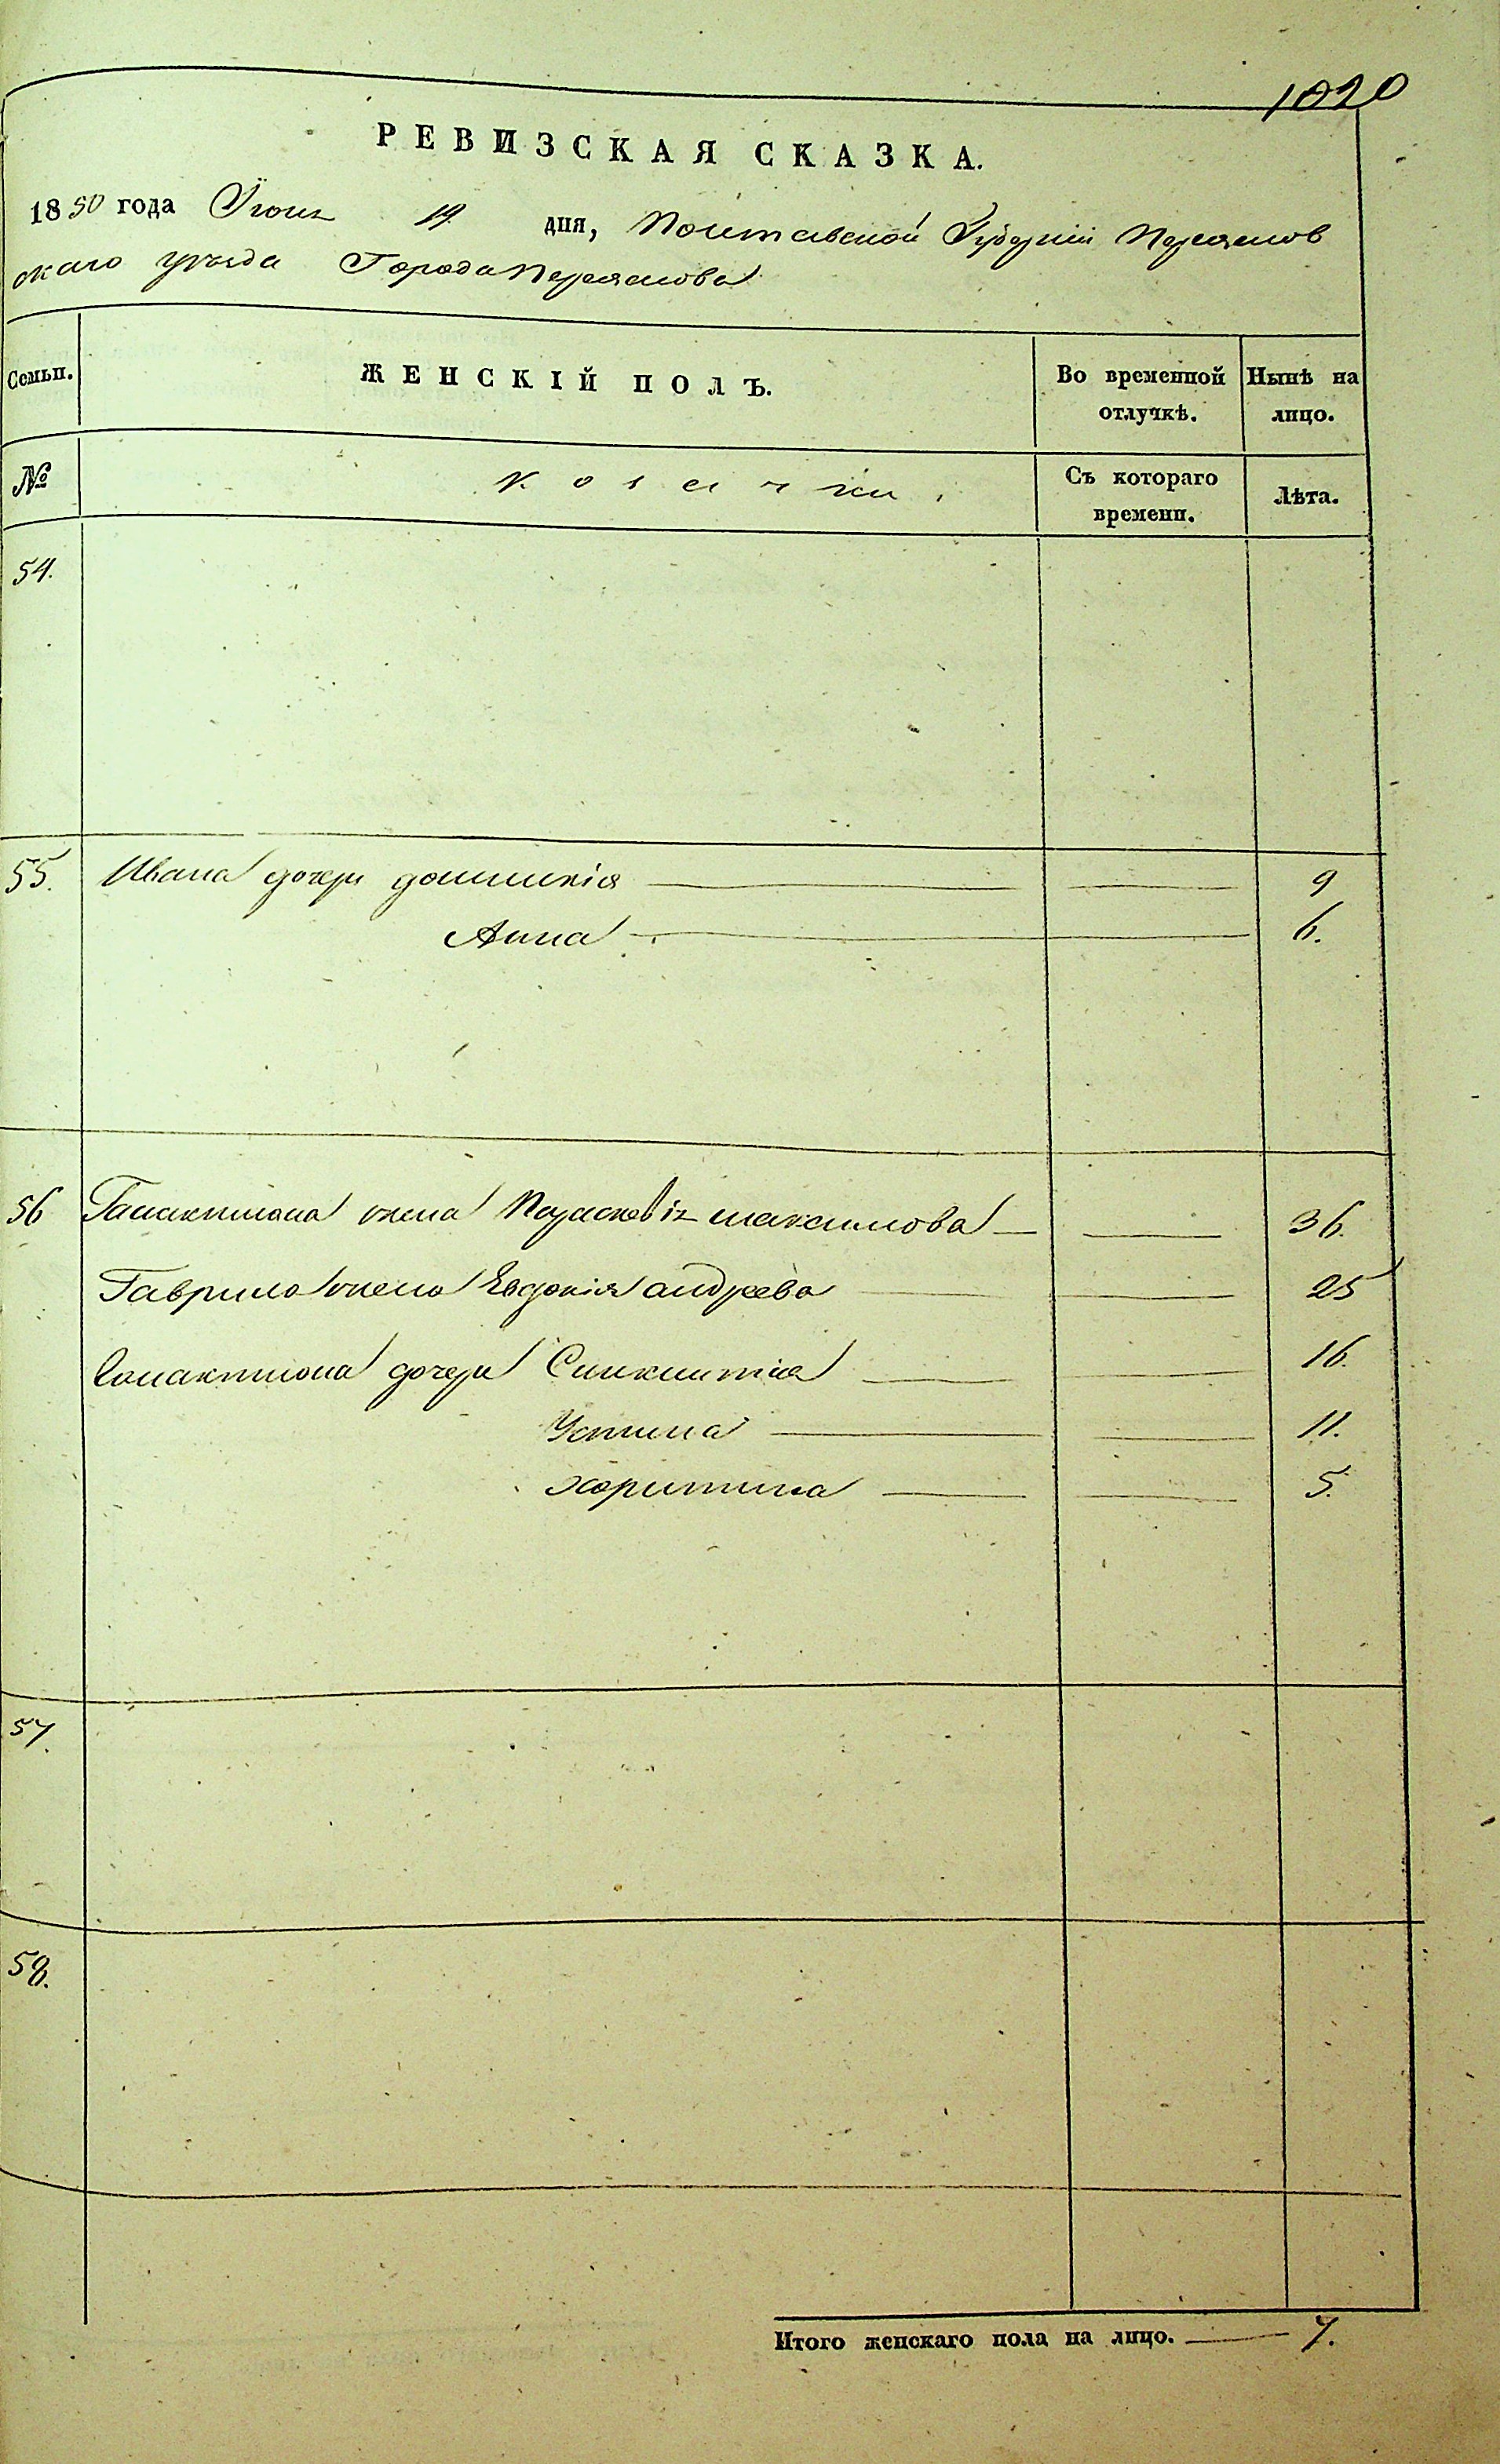 1020
РЕВИЗСКАЯ СКАЗКА.
1850 года Іюня 19 дня, Полтавской Губерніи Переяслов
скаго уѣзда Города Переяслова
Семьи. ЖЕНСКІЙ ПОЛЪ. Во временной отлучкѣ. Нынѣ на лицо.
№ Козачки. Съ котораго времени. Лѣта.
54.
55. Ивана дочери домникія 9
Анна 6.
56 Галактиона жена Параскевія максимова 36.
Гаврила жена Евдокія андреева 25
Галактиона дочери Синклитія 16.
Устина 11.
харитина 5.
57.
58.
Итого женскаго пола на лицо. 7.